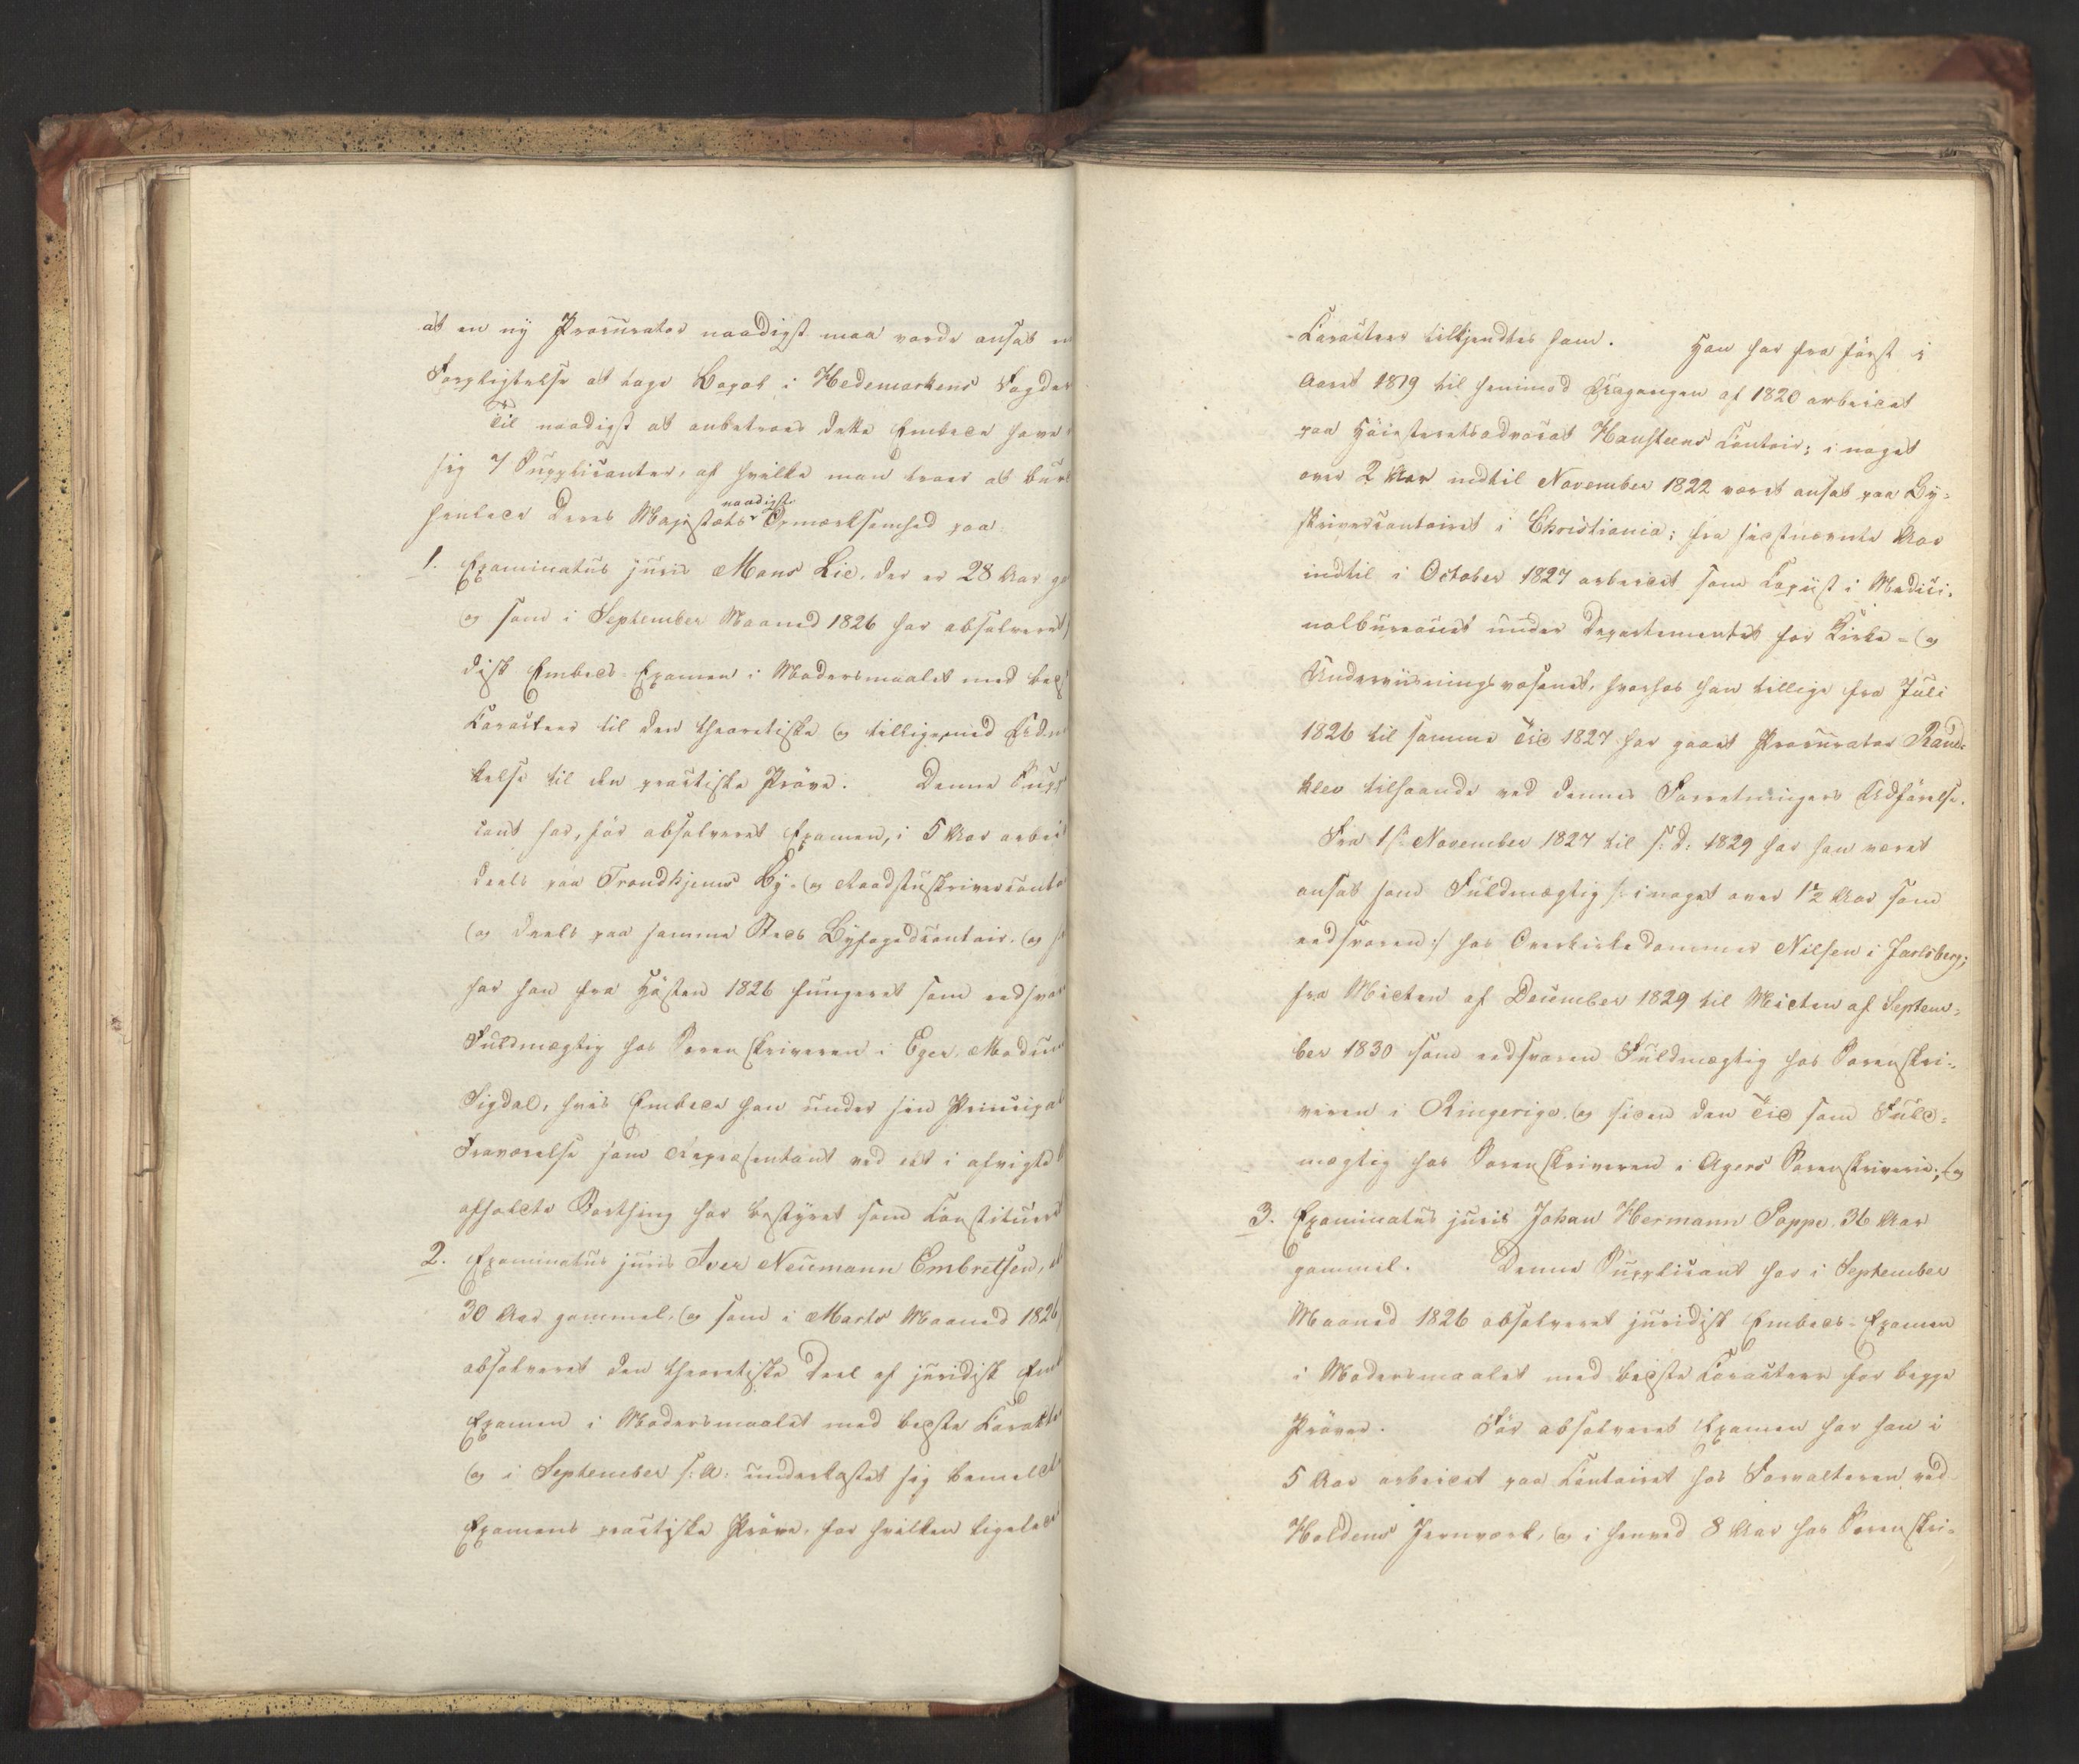 at en ny Procurator naadigst maa vorde ansat m
Forpligtelse at tage Bopæl i Hedemarkens Fogder
Til naadigst at anbetroes dette Embede have
sig 7 Supplicanter, af hvilke man troer at bur
naadigste
henlede Deres Majestæts Opmærksomhed paa:
1. Examinatus juris Mons Lie, der er 28 Aar g
og som i September Maaned 1826 har absolveret
disk Embeds-Examen i Modersmaalet med beds
Caracteer til den theoretiske og tilligemed Udm
kelse til den practiske Pröve. Denne Supp
cant har, för absolveret Examen, i 5 Aar arbei
deels paa Trondhjems By- og Raadstuskrivercontoi
og deels paa samme Steds Byfogedcontoir, og
har han fra Hösten 1826 fungeret som eedsvor
Fuldmægtig hos Sorenskriveren i Eger, Modum
Sigdal, hvis Embede han under sin Principal
Fraværelse som Repræsentant ved det i afvigte
afholdte Storthing har bestyret som Constitueret
2. Examinatus juris Iver Neumann Embretsen,
30 Aar gammel, og som i Marts Maaned 1826
absolveret den theoretiske Deel af juridisk Emb
Examen i Modersmaalet med bedste Carakte
og i September s: A: underkastet sig bemeldte
Examens practiske Pröve, for hvilken ligelede
-Caracteer tilkjendtes ham. Han har fra först i
Aaret 1819 til henimod Udgangen af 1820 arbeidet
paa Höiesteretsadvocat Hansteens Contoir; i noget
over 2 Aar indtil November 1822 været ansat paa By-
skrivercontoiret i Christiania; fra sidstnævnte Aar
indtil i October 1827 arbeidet som Copiist i Medici-
nalbureauet under Departementet for Kirke- og
Underviisningsvæsenet, hvorhos han tillige fra Juli
1826 til samme Tid 1827 har gaaet Procurator Rand-
klev tilhaande ved dennes Forretningers Udförelse.
Fra 1ste November 1827 til s: d: 1829 har han været
ansat som Fuldmægtig /: i noget over 1½ Aar som
eedsvoren :/ hos Overkirkedommer Nilsen i Jarlsberg;
fra Midten af December 1829 til Midten af Septem-
ber 1830 som eedsvoren Fuldmægtig hos Sorenskri-
veren i Ringerige, og siden den Tid som Fuld-
mægtig hos Sorenskriveren i Agers Sorenskriverie; og
3. Examinatus juris Johan Hermann Poppe, 36 Aar
gammel. Denne Supplicant har i September
Maaned 1826 absolveret juridisk Embeds-Examen
i Modersmaalet med bedste Caracteer for begge
Pröver. För absolveret Examen har han i
5 Aar arbeidet paa Contoiret hos Forvalteren ved
Holdens Jernværk, og i henved 8 Aar hos Sorenskri-